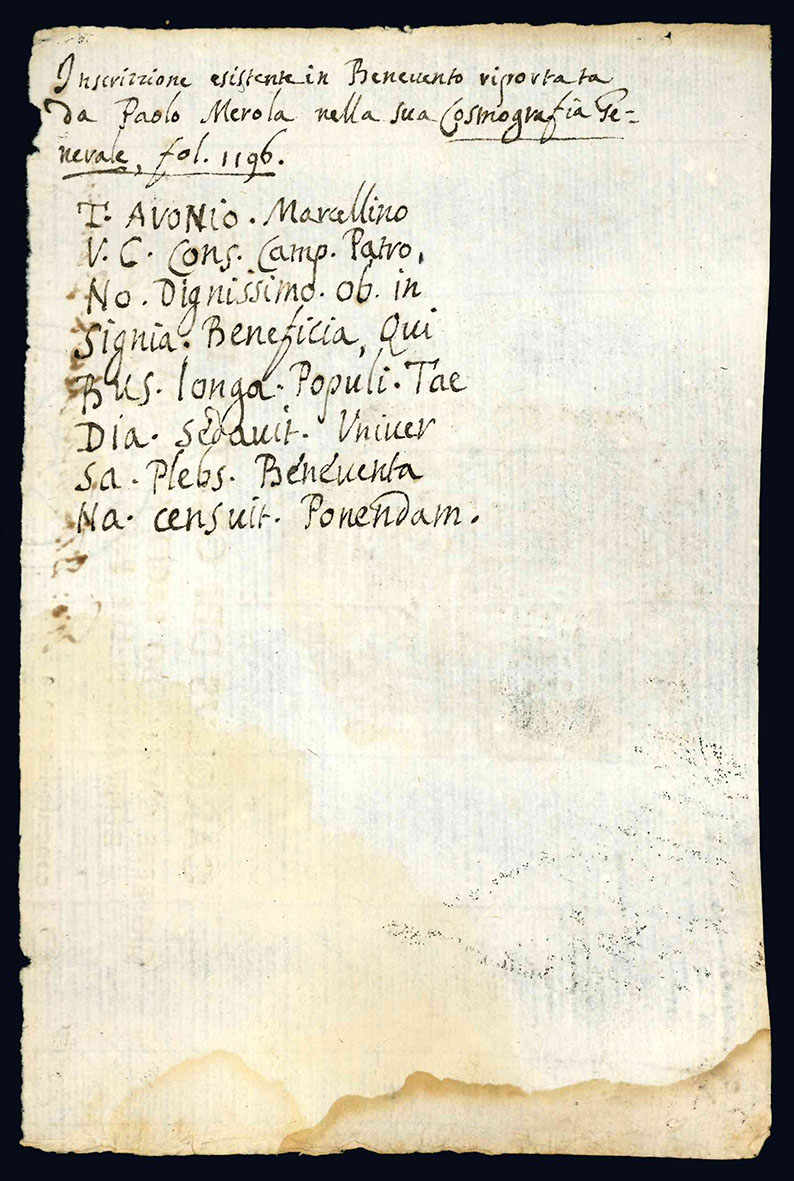 Inscrizzione esistente in Benevento riportata
da Paolo Merola nella sua Cosmografia Ge=
nerale, fol. 1196.
T. AVONIO. Marcellino
V. C. Cons. Camp. Patro,
No. Dignissimo. ob. in
Signia. Beneficia, Qui
Bus. longa. Populi. Tae
Dia. sedavit. Univer
Sa. Plebs. Beneventa
Na. censuit. Ponendam.